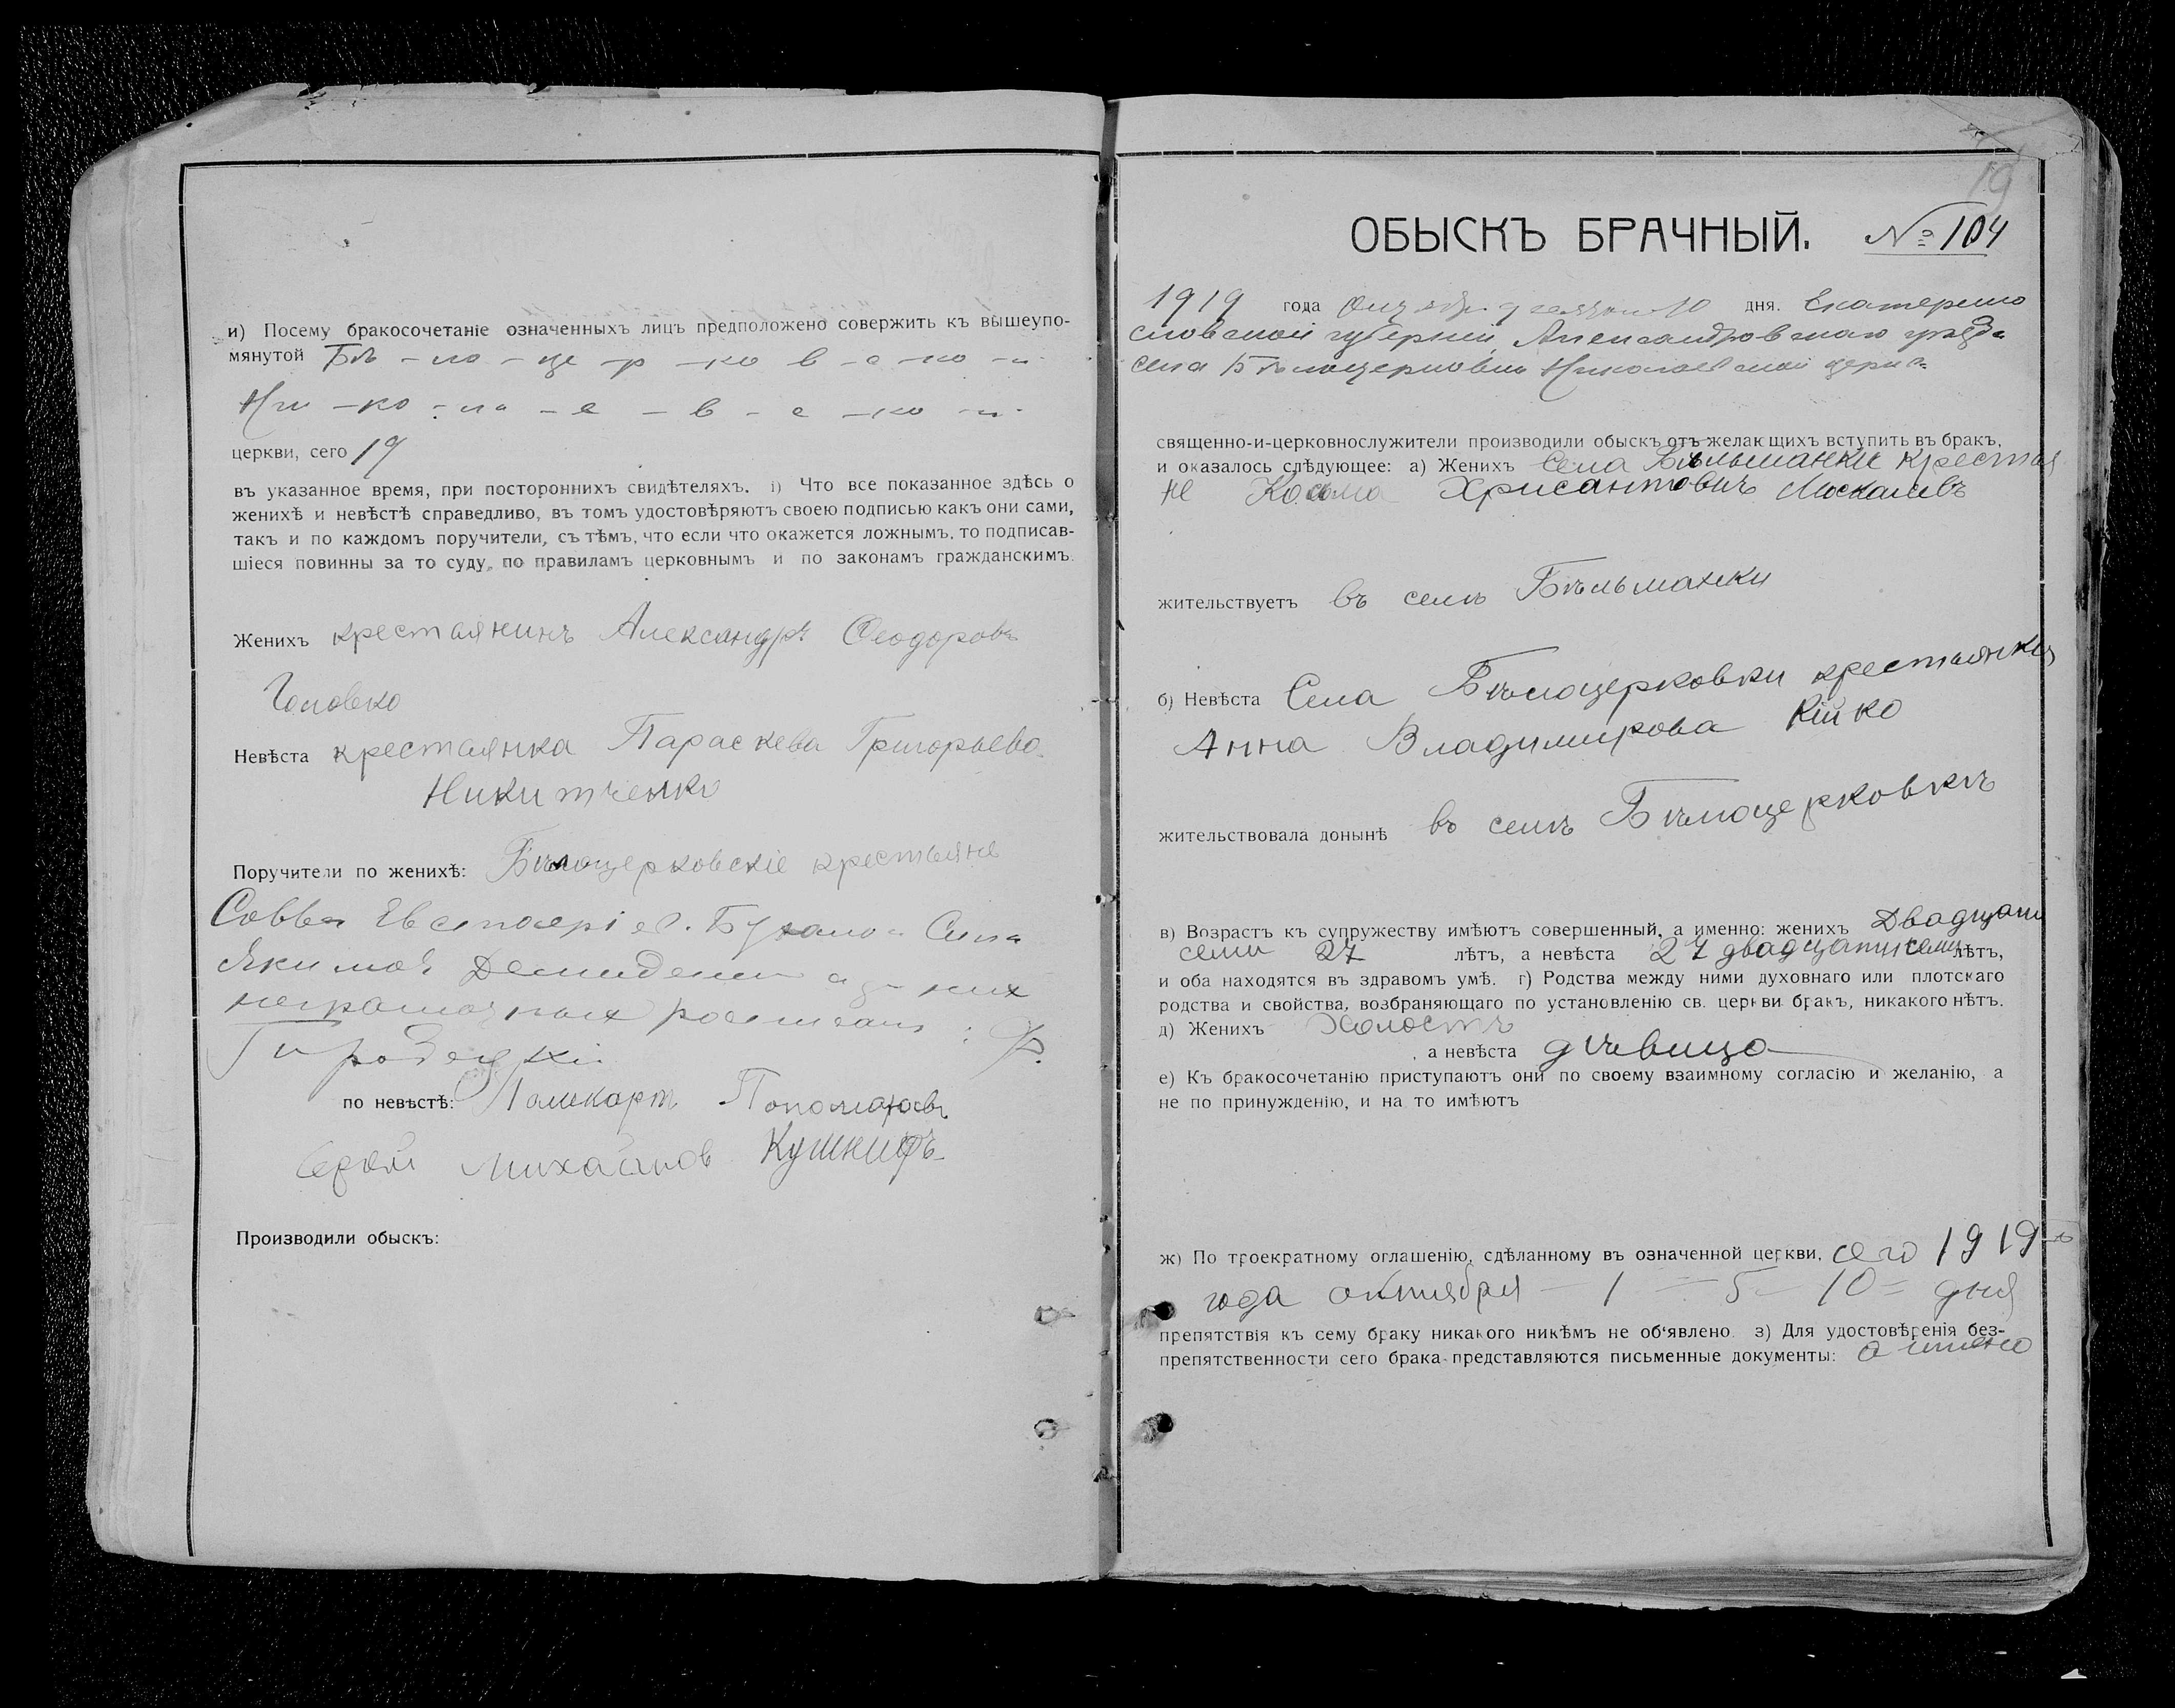 и) Посему бракосочетаніе означенныхъ лицъ предположено совержить къ вышеупо-
мянутой Бѣ - ло - це - р - ко в - с - ко - й
Ни - ко - ла - е - в - с - ко - й
церкви, сего 19
въ указанное время, при постороннихъ свидѣтеляхъ. і) Что все показанное здѣсь о
женихѣ и невѣстѣ справедливо, въ томъ удостовѣряютъ своею подписью какъ они сами,
такъ и по каждомъ поручители, съ тѣмъ, что если что окажется ложнымъ, то подписав-
шіеся повинны за то суду, по правиламъ церковнымъ и по законамъ гражданскимъ.
Женихъ крестьянинъ Александръ Ѳеодоровъ
Головко
Невѣста крестьянка Параскева Григорьева
Никитченко
Поручители по женихѣ: Бѣлоцерковскіе крестьяне
Савва
неграмотных
по невѣстѣ: Пономаревъ
Михайлов Кушниръ
Производили обыскъ:
19
ОБЫСКЪ БРАЧНЫЙ. № 104
1919 года дня. Екатерино
славской губерніи, Александровскаго уѣзда
села Бѣлоцерковки Николаевской церкви
священно-и-церковнослужители производили обыскъ отъ желающихъ вступить въ бракъ,
и оказалось слѣдующее: а) Женихъ Села Бѣльманки крестья
не Косьма Хрисантовичъ Москалевъ
жительствуетъ въ селѣ Бѣльманки
б) Невѣста Села Бѣлоцерковки крестьянка
Анна Владимирова Кійко
жительствовала донынѣ въ селѣ Бѣлоцерковкѣ
в) Возрастъ къ супружеству имѣютъ совершенный, а именно: женихъ Двадцати
семи 27 лѣтъ, а невѣста 27 двадцати семи лѣтъ,
и оба находятся въ здравомъ умѣ. г) Родства между ними духовнаго или плотскаго
родства и свойства, возбраняющаго по установленію св. церкви бракъ, никакого нѣтъ.
д) Женихъ Холостъ
а невѣста дѣвица
е) Къ бракосочетанію приступаютъ они по своему взаимному согласію и желанію, а
не по принужденію, и на то имѣютъ
ж) По троекратному оглашенію, сдѣланному въ означенной церкви, сего 1919-го
года октября - 1 - 5 - 10 - дня
препятствія къ сему браку никакого никѣмъ не об‘явлено. з) Для удостовѣренія без-
препятственности сего брака представляются письменные документы: а именно